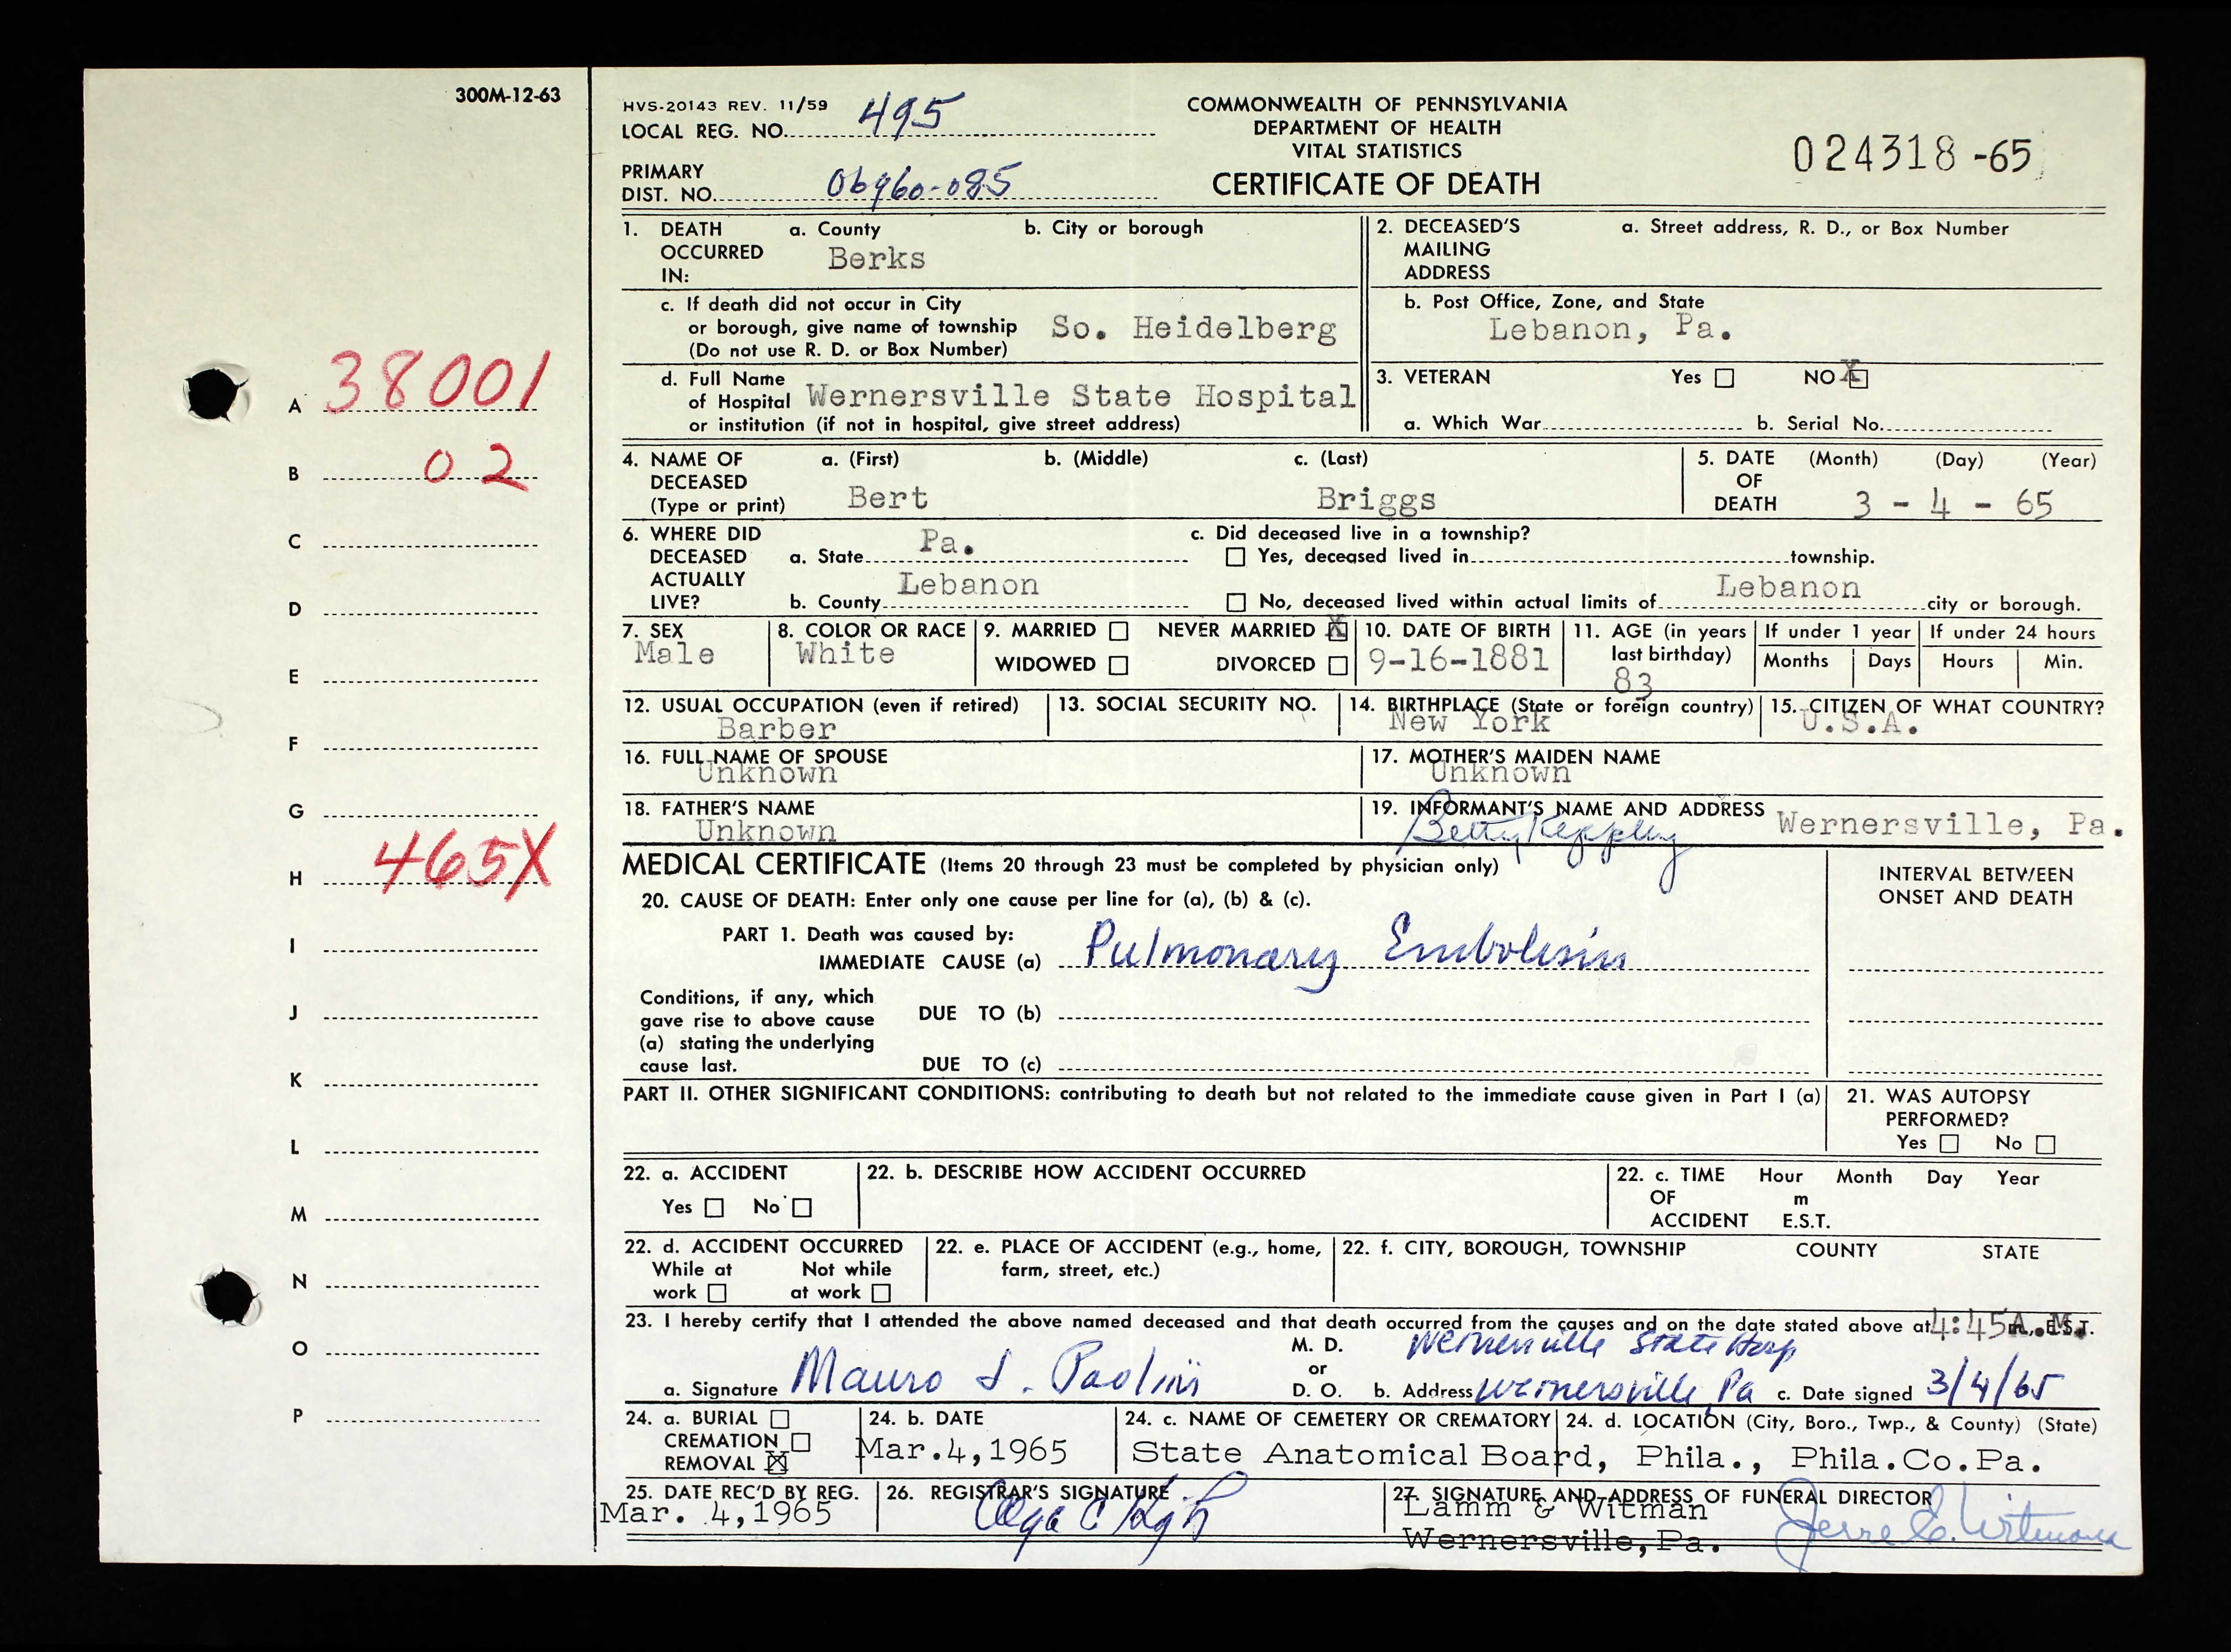 300M-12-63
HVS-20143 REV. 11/59
LOCAL REG. NO. 495
PRIMARY
DIST. NO. 06960-085
COMMONWEALTH OF PENNSYLVANIA
DEPARTMENT OF HEALTH
VITAL STATISTICS
CERTIFICATE OF DEATH
024318-65
A 38001
B 02
C
D
E
F
G
H 465X
I
J
K
L
M
N
O
P
1. DEATH OCCURRED IN: a. County Berks b. City or borough
c. If death did not occur in City
or borough, give name of township So. Heidelberg
(Do not use R. D. or Box Number)
d. Full Name
of Hospital Wernersville State Hospital
or institution (if not in hospital, give street address)
2. DECEASED'S MAILING ADDRESS a. Street address, R. D., or Box Number
b. Post Office, Zone, and State
Lebanon, Pa.
3. VETERAN Yes NO X
a. Which War b. Serial No.
4. NAME OF DECEASED (Type or print) a. (First) b. (Middle) c. (Last)
Bert Briggs
5. DATE OF DEATH (Month) (Day) (Year)
3 - 4 - 65
6. WHERE DID DECEASED ACTUALLY LIVE? a. State Pa.
b. County Lebanon
c. Did deceased live in a township?
Yes, deceased lived in township.
No, deceased lived within actual limits of Lebanon city or borough.
7. SEX
Male
8. COLOR OR RACE
White
9. MARRIED NEVER MARRIED X
WIDOWED DIVORCED
10. DATE OF BIRTH
9-16-1881
11. AGE (in years last birthday)
83
If under 1 year
Months Days
If under 24 hours
Hours Min.
12. USUAL OCCUPATION (even if retired)
Barber
13. SOCIAL SECURITY NO.
14. BIRTHPLACE (State or foreign country)
New York
15. CITIZEN OF WHAT COUNTRY?
U.S.A.
16. FULL NAME OF SPOUSE
Unknown
17. MOTHER'S MAIDEN NAME
Unknown
18. FATHER'S NAME
Unknown
19. INFORMANT'S NAME AND ADDRESS
Betty Keppley Wernersville, Pa.
MEDICAL CERTIFICATE (Items 20 through 23 must be completed by physician only)
INTERVAL BETWEEN
ONSET AND DEATH
20. CAUSE OF DEATH: Enter only one cause per line for (a), (b) & (c).
PART 1. Death was caused by:
IMMEDIATE CAUSE (a) Pulmonary Embolism
Conditions, if any, which
gave rise to above cause
(a) stating the underlying
cause last.
DUE TO (b)
DUE TO (c)
PART II. OTHER SIGNIFICANT CONDITIONS: contributing to death but not related to the immediate cause given in Part I (a)
21. WAS AUTOPSY
PERFORMED?
Yes No
22. a. ACCIDENT
Yes No
22. b. DESCRIBE HOW ACCIDENT OCCURRED
22. c. TIME OF ACCIDENT Hour Month Day Year
m
E.S.T.
22. d. ACCIDENT OCCURRED
While at work Not while at work
22. e. PLACE OF ACCIDENT (e.g., home,
farm, street, etc.)
22. f. CITY, BOROUGH, TOWNSHIP COUNTY STATE
23. I hereby certify that I attended the above named deceased and that death occurred from the causes and on the date stated above at 4:45 A.M. m., E.S.T.
a. Signature Mauro J. Paolini
M. D.
or
D. O.
Wernersville State Hosp
b. Address Wernersville, Pa c. Date signed 3/4/65
24. a. BURIAL
CREMATION
REMOVAL X
24. b. DATE
Mar.4,1965
24. c. NAME OF CEMETERY OR CREMATORY 24. d. LOCATION (City, Boro., Twp., & County) (State)
State Anatomical Board, Phila., Phila.Co.Pa.
25. DATE REC'D BY REG.
Mar. 4,1965
26. REGISTRAR'S SIGNATURE
Olga C
27. SIGNATURE AND ADDRESS OF FUNERAL DIRECTOR
Lamm & Witman
Wernersville,Pa.